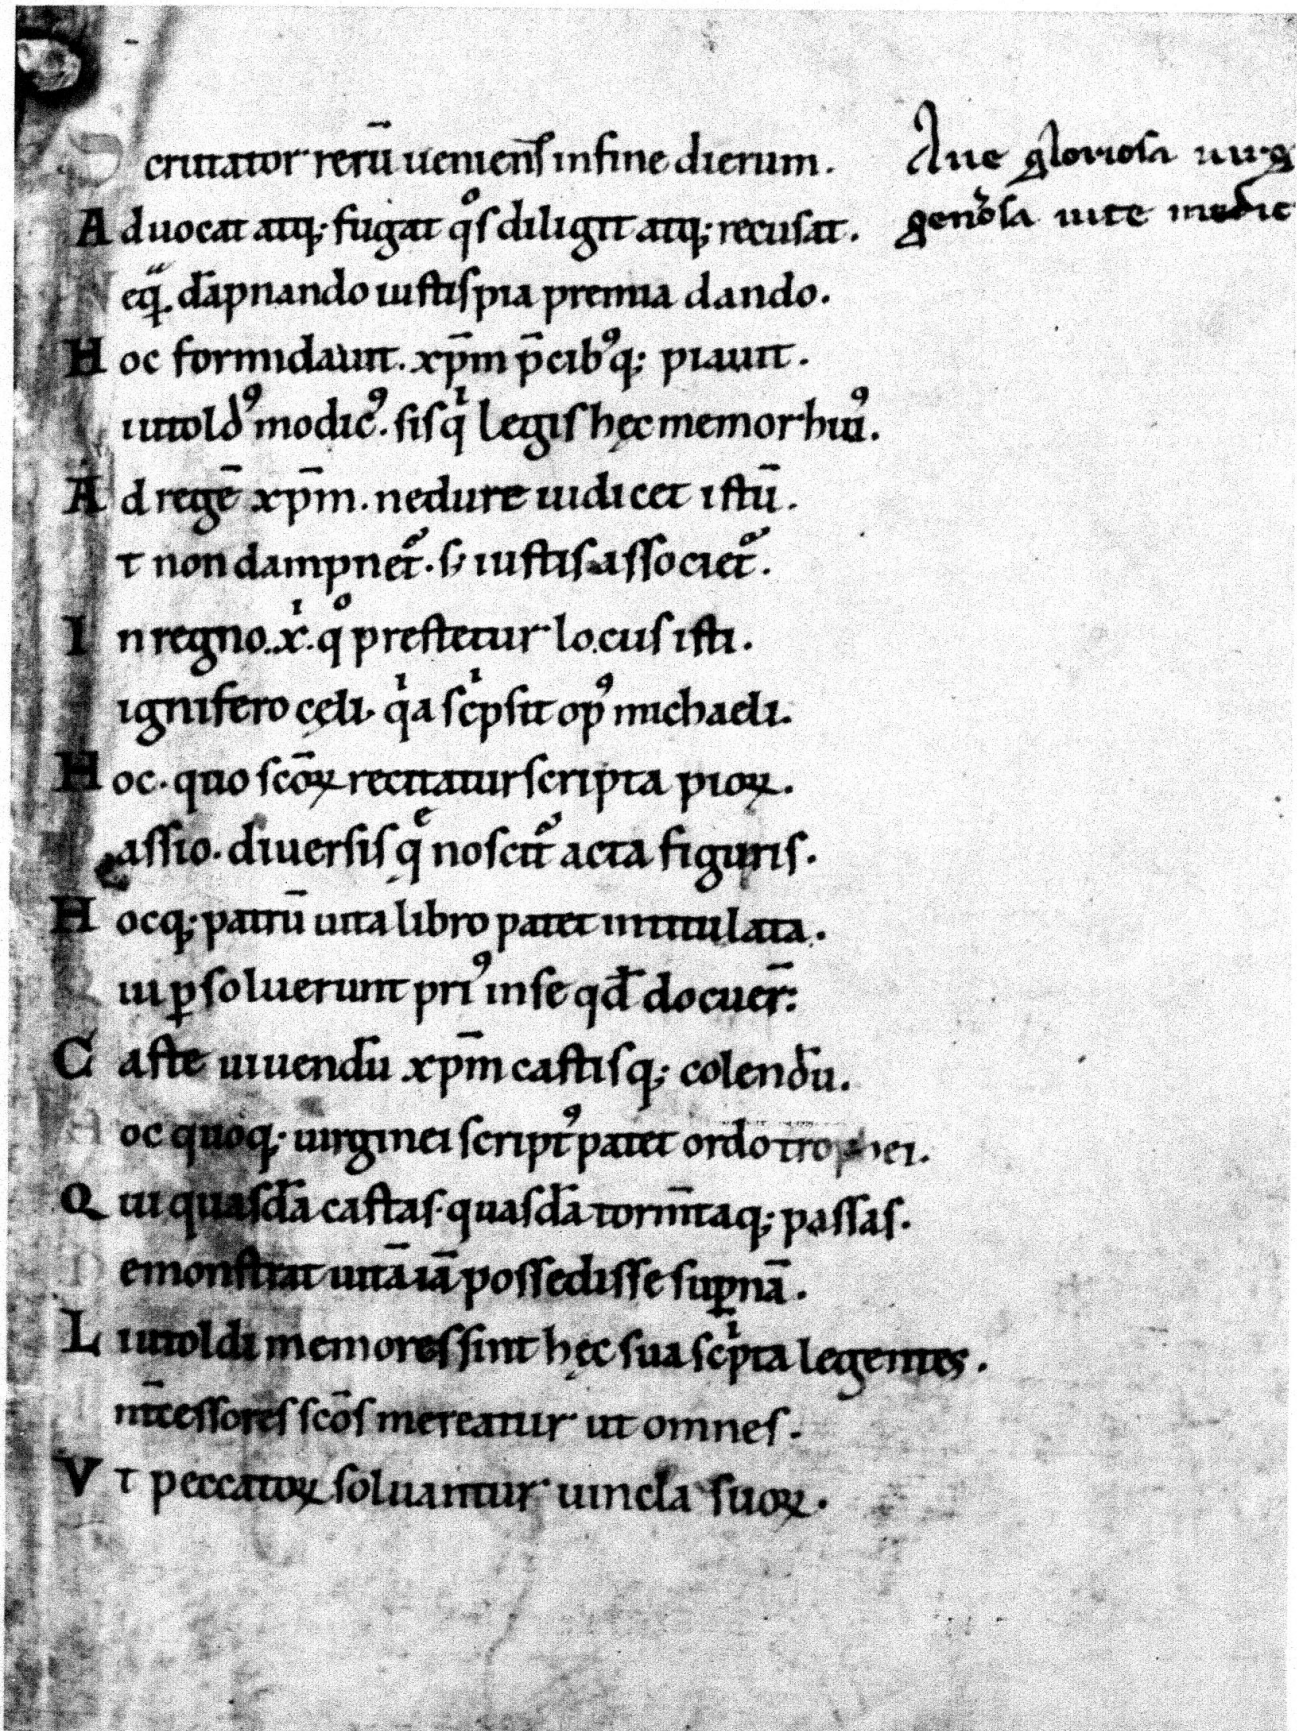 Scrutator rerū ueniens̄ infine dierum.
Aduocat atq; fugat qͦs diligit atq; recusat.
Neqᷓ. dāpnando iustis pia premia dando.
Hoc formidauit. xp̄m p̄cibꝰq; piauit.
Liutoldꝰ modicꝰ. sisqͥ legis hęc memor huiꝰ.
Ad regē xp̄m. nedure iudicet istū.
Vt non dampnet᷑. sꝫ iustis associet᷑.
In regno. xͥ. qͦ prestetur locus isti.
Signifero cęli. qͥa scͥpsit opꝰ michaeli.
Hoc. quo scōꝝ recitatur scripta pioꝝ.
Passio. diuersis qͤ noscit᷑ acta figuris.
Hocq; patrū uita libro patet intitulata.
Qui ꝑsoluerunt priꝰ inse qd̄ docuer̄:
Caste uiuend̄u xp̄m castisq; colend̄u.
Hoc quoq; uirginei scriptꝰ patet ordo trophei.
Qui quasd̄a castas. quasd̄a torm̄taq; passas.
Demonstrat uitā iā possedisse suꝑnā.
Liutoldi memores sint hęc sua scͥpta legentes.
Int̄cessores scōs mereatur ut omnes.
Vt peccatoꝝ soluantur uincla suoꝝ.
Aue gloriosa uirg
gen̓osa uite medic